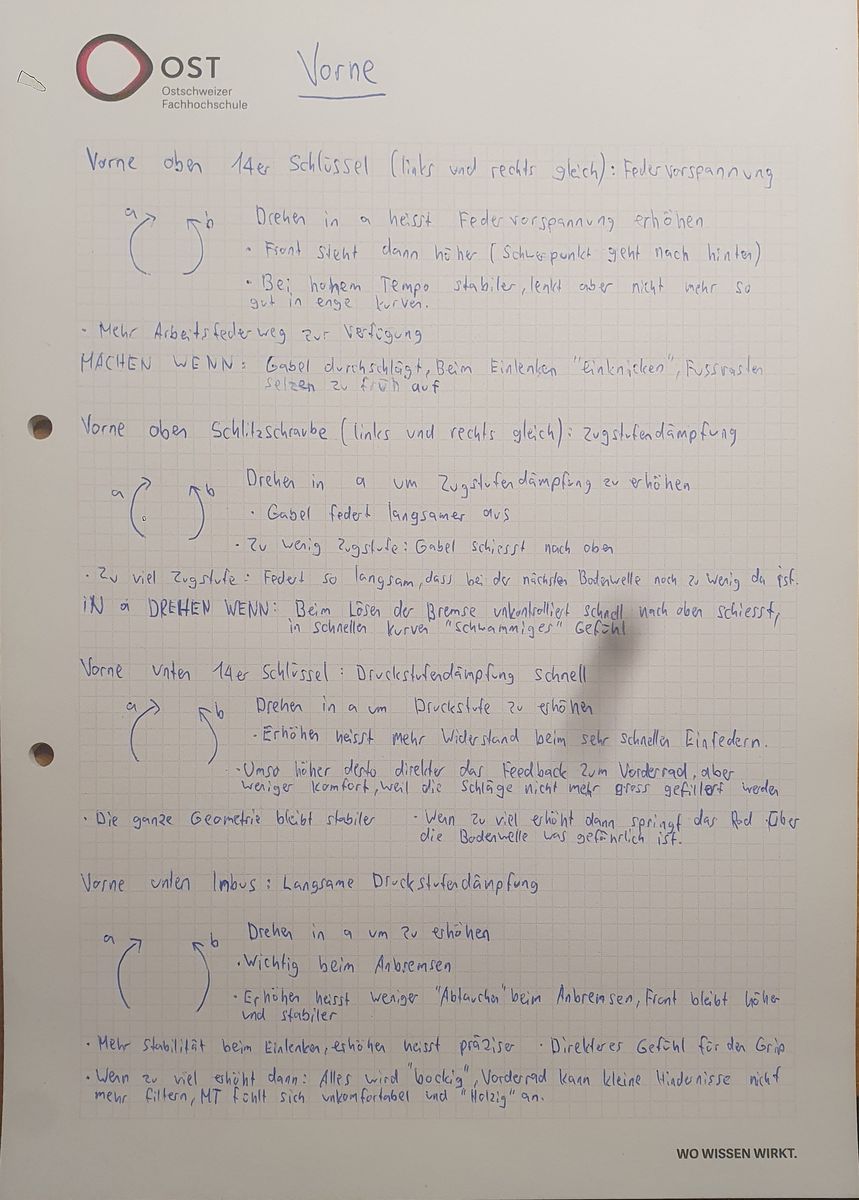 OST
Ostschweizer
Fachhochschule
Vorne
Vorne oben 14er Schlüssel (links und rechts gleich): Federvorspannung
a b Drehen in a heisst Federvorspannung erhöhen
• Front steht dann höher (Schwerpunkt geht nach hinten)
• Bei hohem Tempo stabiler, lenkt aber nicht mehr so
gut in enge kurven.
• Mehr Arbeitsfederweg zur Verfügung
MACHEN WENN: Gabel durchschlägt, Beim Einlenken "einknicken", Fussrasten
setzen zu früh auf
Vorne oben Schlitzschraube (links und rechts gleich): Zugstufendämpfung
a b Drehen in a um Zugstufendämpfung zu erhöhen
• Gabel federt langsamer aus
• Zu wenig Zugstufe: Gabel schiesst nach oben
• Zu viel Zugstufe: Federt so langsam, dass bei der nächsten Bodenwelle noch zu wenig da ist.
iN a DREHEN WENN: Beim Lösen der Bremse unkontrolliert schnell nach oben schiesst,
in schnellen kurven "schwammiges" Gefühl
Vorne unten 14er Schlüssel: Druckstufendämpfung schnell
a b Drehen in a um Druckstufe zu erhöhen
• Erhöhen heisst mehr Widerstand beim sehr schnellen Einfedern.
• Umso höher desto direkter das Feedback zum Vorderrad, aber
weniger komfort, weil die Schläge nicht mehr gross gefiltert werden
• Die ganze Geometrie bleibt stabiler • Wenn zu viel erhöht dann springt das Rad über
die Bodenwelle was gefährlich ist.
Vorne unten Imbus: Langsame Druckstufendämpfung
a b Drehen in a um zu erhöhen
• Wichtig beim Anbremsen
• Erhöhen heisst weniger "Abtauchen" beim Anbremsen, Front bleibt höher
und stabiler
• Mehr Stabilität beim Einlenken, erhöhen heisst präziser • Direkteres Gefühl für den Grip
• Wenn zu viel erhöht dann: Alles wird "bockig", Vorderrad kann kleine Hindernisse nicht
mehr filtern, MT fühlt sich unkomfortabel und "Holzig" an.
WO WISSEN WIRKT.